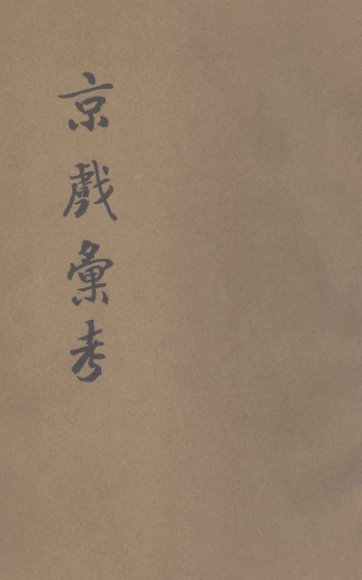 京戲彙考